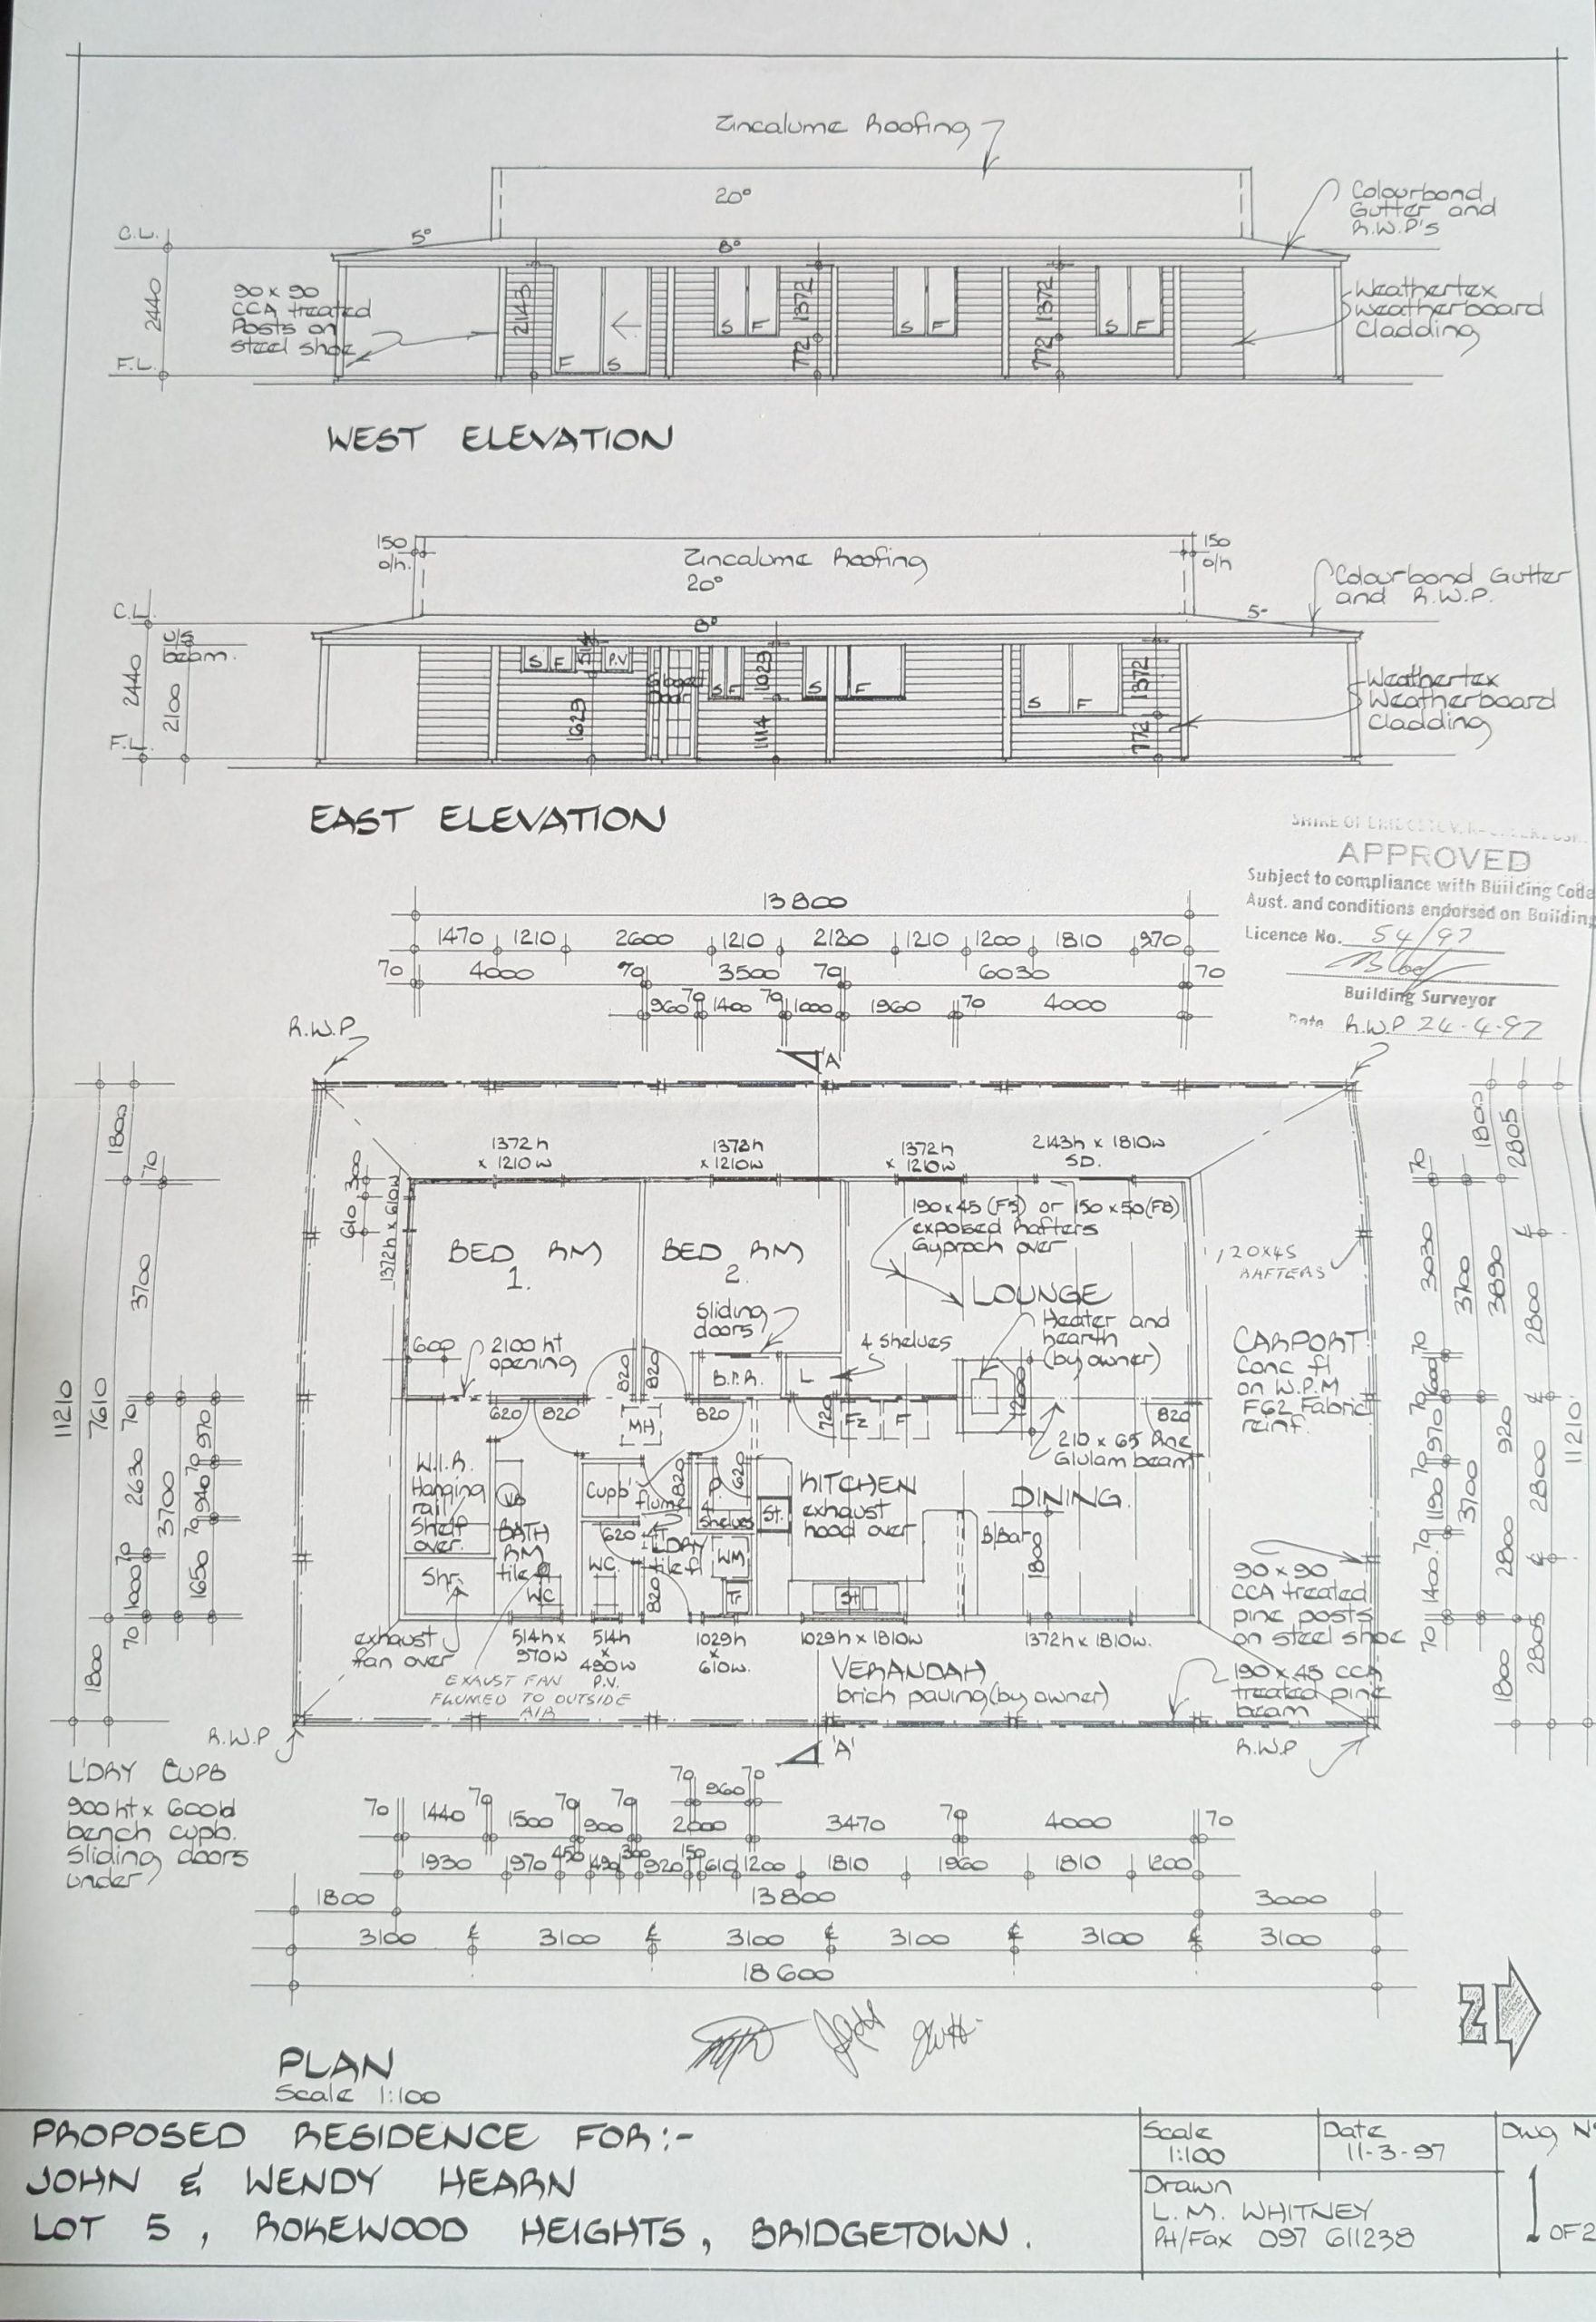 Zincalume Roofing
20°
Colourbond
Gutter and
R.W.P's
C.L.
5°
8°
2440
90 x 90
CCA treated
Posts on
steel shoe
2143
1372
772
1372
772
S F
S F
S F
F S
Weathertex
Weatherboard
Cladding
F.L.
WEST ELEVATION
150
o/h.
Zincalume Roofing
20°
150
o/h
Colourbond Gutter
and R.W.P.
C.L.
U/S
beam.
8°
5°
2440
2100
S F
514
P.V
S F
1029
S F
1372
S F
1629
1114
772
Weathertex
Weatherboard
Cladding
F.L.
EAST ELEVATION
APPROVED
Subject to compliance with Building Code
Aust. and conditions endorsed on Building
Licence No. 54/97
Building Surveyor
Date 24-4-97
13800
1470 1210 2600 1210 2130 1210 1200 1810 970
70 4000 70 3500 70 6030 70
960 70 1400 70 1000 1960 70 4000
R.W.P
R.W.P
'A'
1372h
x 1210w
1372h
x 1210w
1372h
x 1210w
2143h x 1810w
SD.
1800
70
300
610
1372h x 610w
190x45 (F5) or 150x50 (F8)
exposed Rafters
Gyprock over
120x45
RAFTERS
BED RM
1.
BED RM
2.
LOUNGE
Sliding
doors
Heater and
hearth
(by owner)
4 shelves
CARPORT
Conc fl
on W.P.M
F62 Fabric
reinf.
600
2100 ht
opening
820
820
B.I.R.
L
1200
620
820
MH
820
720
Fz
F
820
210 x 65 Pine
Glulam beam
W.I.R.
Hanging
rail
Shelf
over.
VB
BATH
RM
tile fl
Cupb'
flume
820
P.
4
shelves
620
St.
KITCHEN
exhaust
hood over
DINING
B/Bar
1800
620
WC
L'DRY
tile fl
WM
T
820
WC
Shr.
90 x 90
CCA treated
pine posts
on steel shoe
exhaust
fan over
514h x
970w
514h
x
490w
P.V.
1029h
x
610w.
1029h x 1810w
1372h x 1810w.
EXAUST FAN
FLUMED TO OUTSIDE
AIR
VERANDAH
brick paving (by owner)
190 x 45 CCA
treated pine
beam
R.W.P
R.W.P
'A'
11210
7610
1800
3700
70
2630
70
1000
70
3700
970
70
940
70
1650
1800
70
3030
70
600
70
970
70
1190
70
1400
70
3700
3700
1800
3890
920
2800
1800
2805
2800
2800
2805
11210
L'DRY CUPB
900 ht x 600 d
bench cupb.
Sliding doors
under
70 960 70
70 1440 70 1500 70 900 70 2000 3470 70 4000 70
1930 970 450 490 300 920 150 610 1200 1810 1960 1810 1200
1800 13800 3000
3100 3100 3100 3100 3100 3100
18600
N
PLAN
Scale 1:100
PROPOSED RESIDENCE FOR:-
JOHN & WENDY HEARN
LOT 5, ROKEWOOD HEIGHTS, BRIDGETOWN.
Scale
1:100
Date
11-3-97
Dwg Nº
Drawn
L.M. WHITNEY
PH/Fax 097 611238
1 OF 2